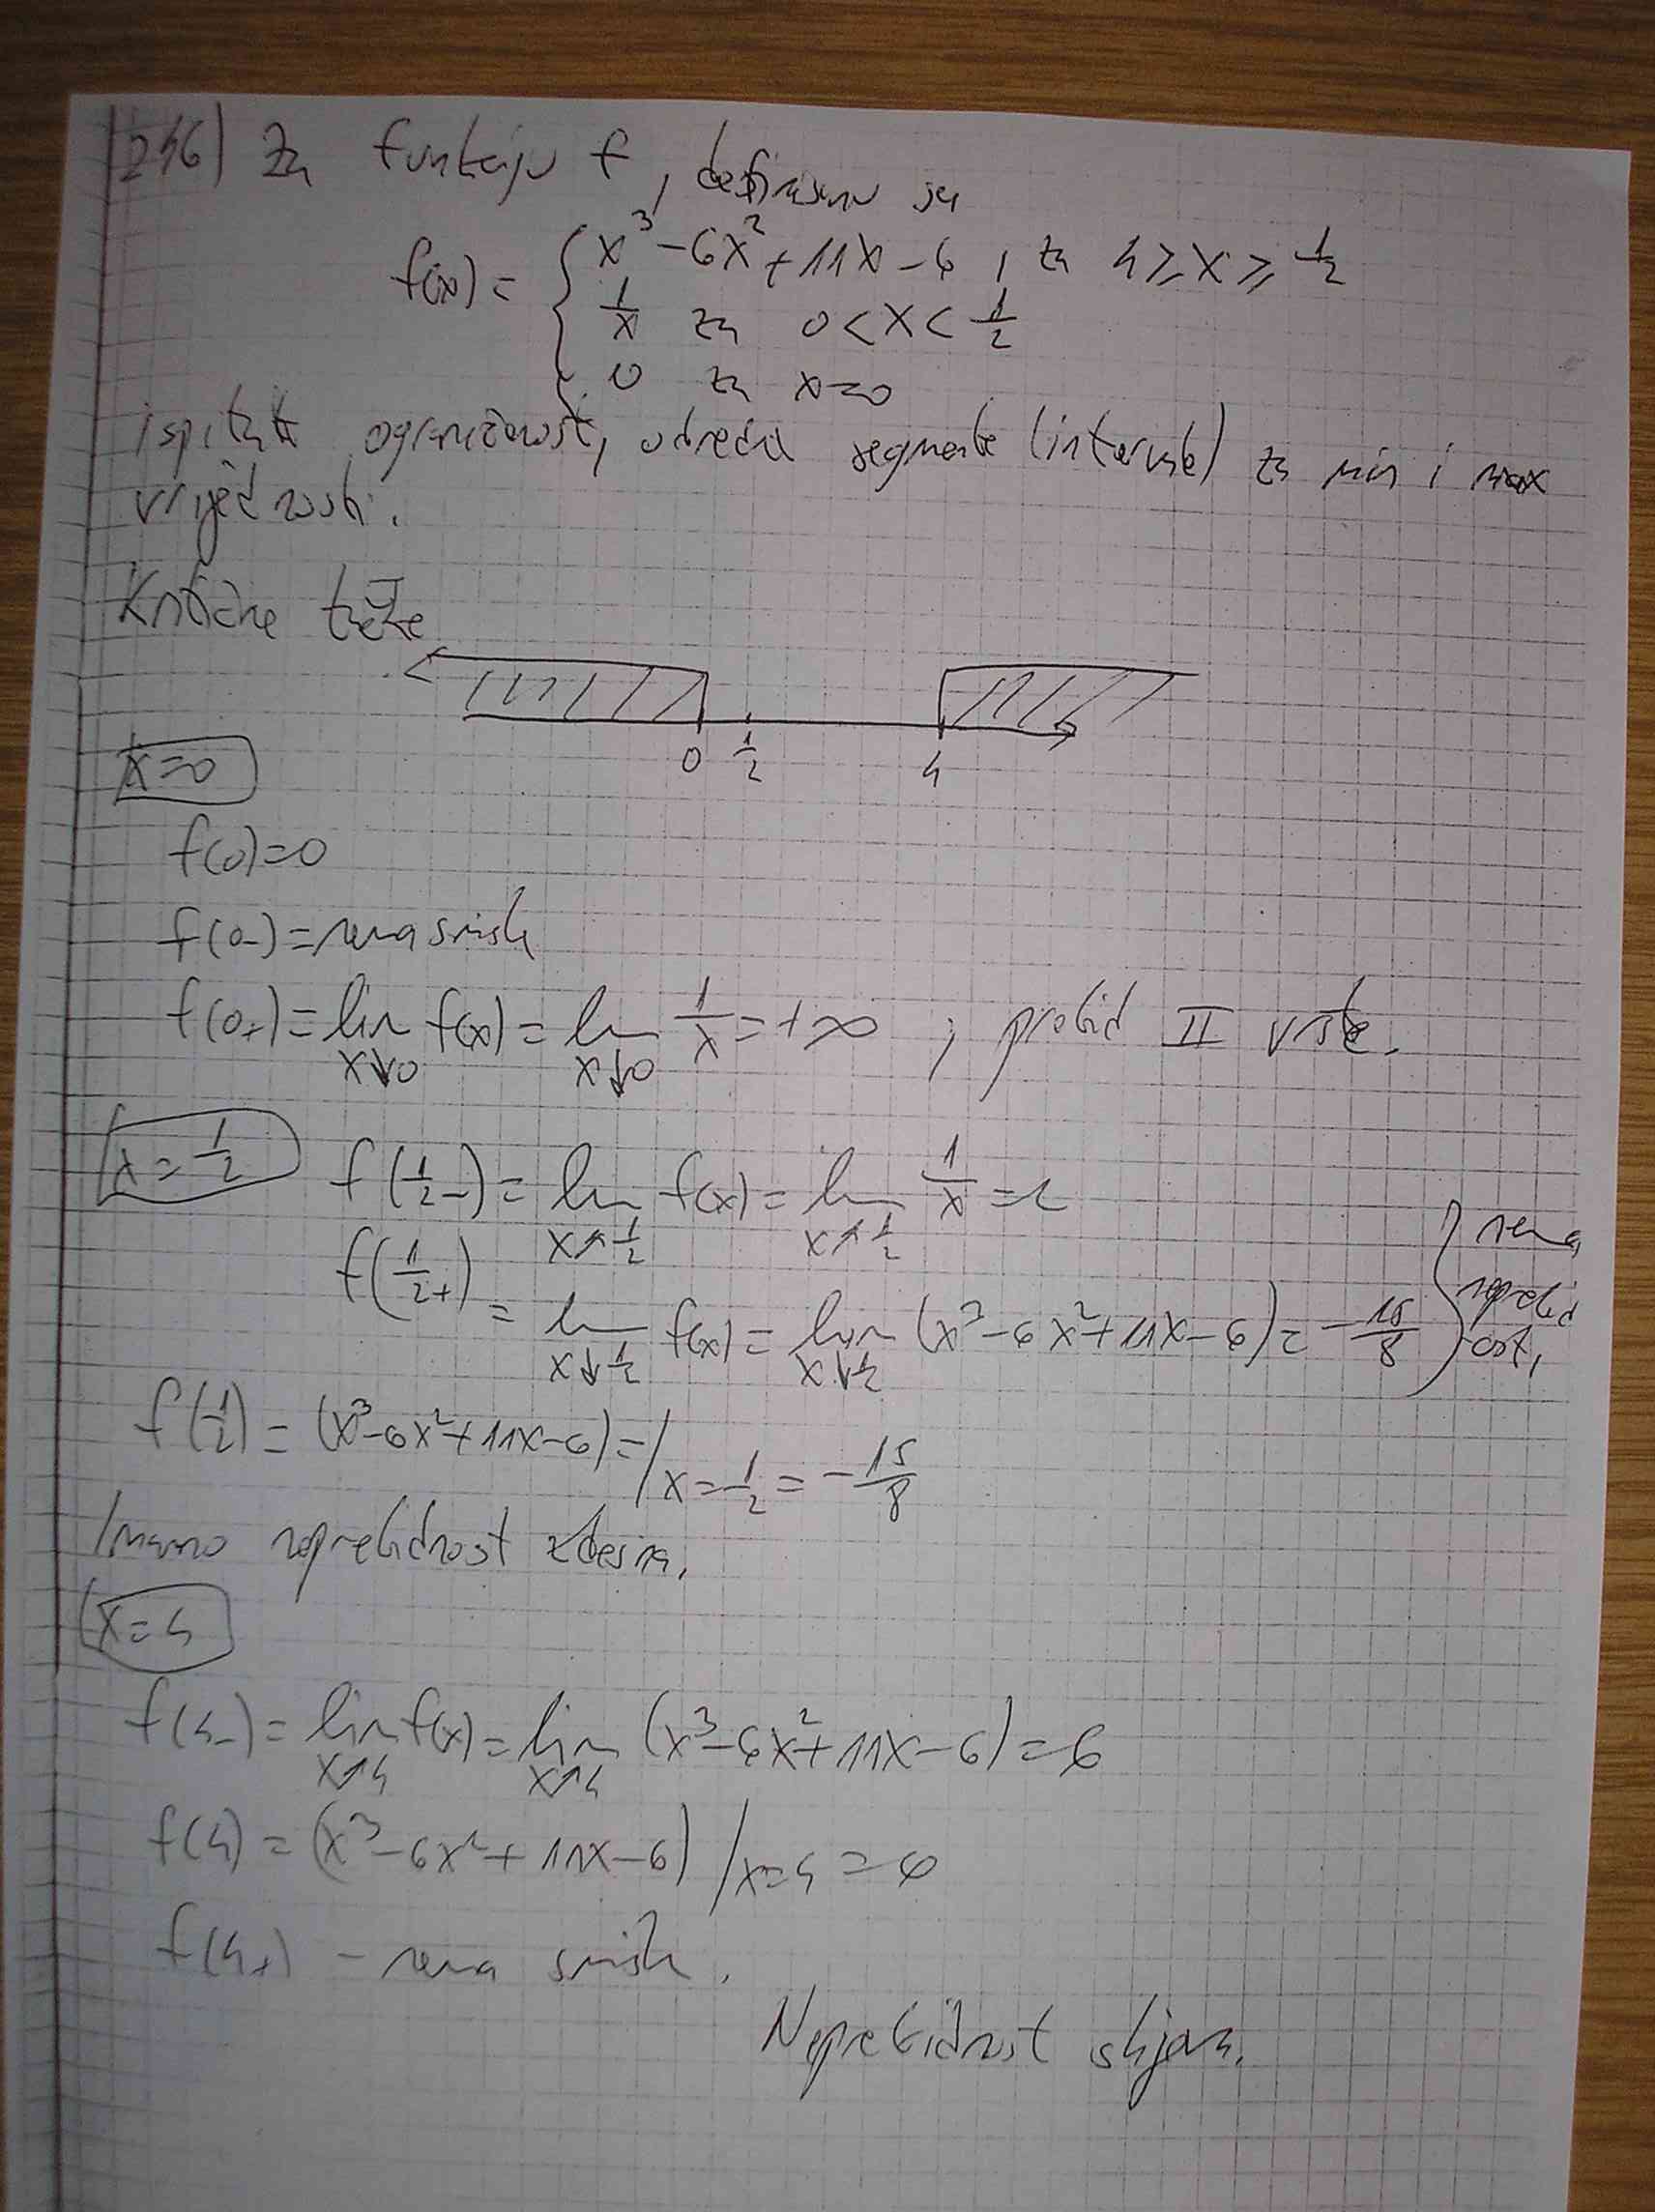 246) Za funkciju f, definisanu sa
f(x) = { x³ - 6x² + 11x - 6 , za 4 ≥ x ≥ 1/2
1/x za 0 < x < 1/2
0 za x = 0
ispitati ograničenost, odrediti segmente (intervale) za min i max
vrijednosti.
Kritične tačke
0 1/2 4
x=0
f(0)=0
f(0-) = nema smisla
f(0+) = lim x↓0 f(x) = lim x↓0 1/x = +∞ ; prekid II vrste.
x = 1/2
f(1/2-) = lim x↑1/2 f(x) = lim x↑1/2 1/x = 2
f(1/2+) = lim x↓1/2 f(x) = lim x↓1/2 (x³ - 6x² + 11x - 6) = -15/8 } nema neprekidnosti,
f(1/2) = (x³ - 6x² + 11x - 6) = / x=1/2 = -15/8
Imamo neprekidnost zdesna.
x = 4
f(4-) = lim x↑4 f(x) = lim x↑4 (x³ - 6x² + 11x - 6) = 6
f(4) = (x³ - 6x² + 11x - 6) / x=4 = 6
f(4+) - nema smisla.
Neprekidnost slijeva.